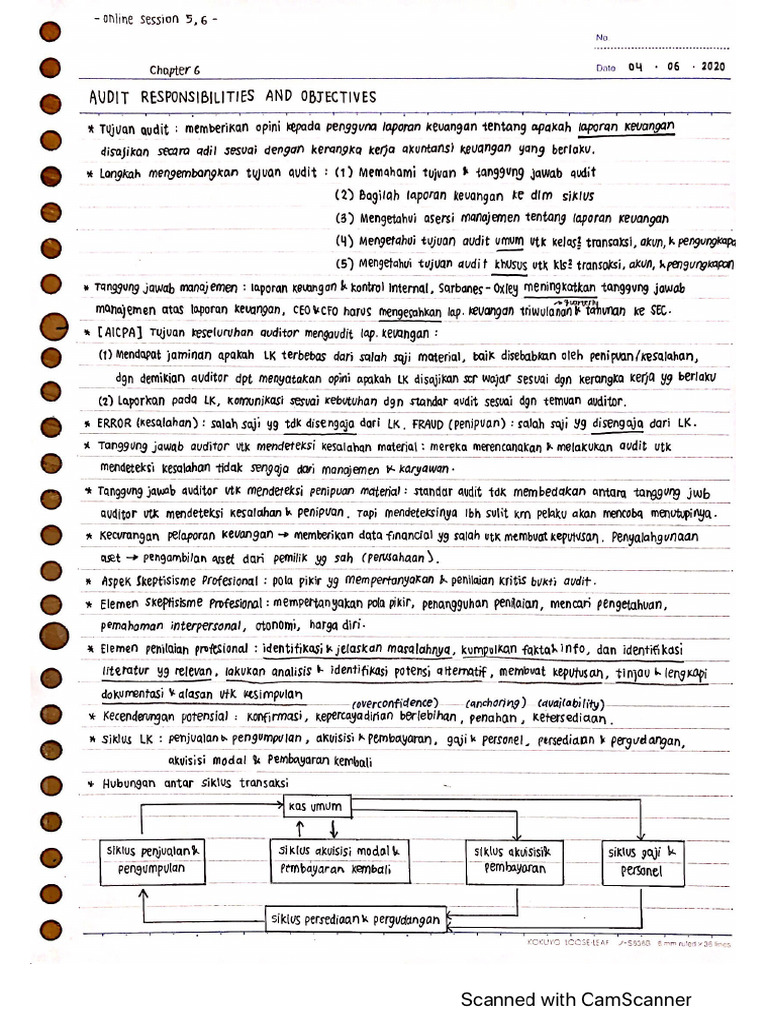 - online session 5,6 -
No.
Date 04 . 06 . 2020
Chapter 6
AUDIT RESPONSIBILITIES AND OBJECTIVES
* Tujuan audit : memberikan opini kepada pengguna laporan keuangan tentang apakah laporan keuangan
disajikan secara adil sesuai dengan kerangka kerja akuntansi keuangan yang berlaku.
* Langkah mengembangkan tujuan audit : (1) Memahami tujuan & tanggung jawab audit
(2) Bagilah laporan keuangan ke dlm siklus
(3) Mengetahui asersi manajemen tentang laporan keuangan
(4) Mengetahui tujuan audit umum utk kelas² transaksi, akun, & pengungkapa
(5) Mengetahui tujuan audit khusus utk kls² transaksi, akun, & pengungkapan
* Tanggung jawab manajemen : laporan keuangan & kontrol internal, Sarbanes-Oxley meningkatkan tanggung jawab
manajemen atas laporan keuangan, CEO & CFO harus mengesahkan lap. keuangan triwulanan & tahunan ke SEC.
→ quarterly
* [AICPA] Tujuan keseluruhan auditor mengaudit lap. keuangan :
(1) Mendapat jaminan apakah LK terbebas dari salah saji material, baik disebabkan oleh penipuan/kesalahan,
dgn demikian auditor dpt menyatakan opini apakah LK disajikan scr wajar sesuai dgn kerangka kerja yg berlaku
(2) Laporkan pada LK, komunikasi sesuai kebutuhan dgn standar audit sesuai dgn temuan auditor.
* ERROR (kesalahan) : salah saji yg tdk disengaja dari LK. FRAUD (penipuan) : salah saji yg disengaja dari LK.
* Tanggung jawab auditor utk mendeteksi kesalahan material : mereka merencanakan & melakukan audit utk
mendeteksi kesalahan tidak sengaja dari manajemen & karyawan.
* Tanggung jawab auditor utk mendeteksi penipuan material : standar audit tdk membedakan antara tanggung jwb
auditor utk mendeteksi kesalahan & penipuan. Tapi mendeteksinya lbh sulit krn pelaku akan mencoba menutupinya.
* Kecurangan pelaporan keuangan → memberikan data financial yg salah utk membuat keputusan. Penyalahgunaan
aset → pengambilan asset dari pemilik yg sah (perusahaan).
* Aspek Skeptisisme Profesional : pola pikir yg mempertanyakan & penilaian kritis bukti audit.
* Elemen Skeptisisme Profesional : mempertanyakan pola pikir, penangguhan penilaian, mencari pengetahuan,
pemahaman interpersonal, otonomi, harga diri.
* Elemen penilaian profesional : identifikasi & jelaskan masalahnya, kumpulkan fakta & info, dan identifikasi
literatur yg relevan, lakukan analisis & identifikasi potensi alternatif, membuat keputusan, tinjau & lengkapi
dokumentasi & alasan utk kesimpulan
(overconfidence) (anchoring) (availability)
* Kecenderungan potensial : konfirmasi, kepercayadirian berlebihan, penahan, ketersediaan.
* Siklus LK : penjualan & pengumpulan, akuisisi & pembayaran, gaji & personel, persediaan & pergudangan,
akuisisi modal & Pembayaran kembali
* Hubungan antar siklus transaksi
kas umum
siklus penjualan &
pengumpulan
siklus akuisisi modal &
pembayaran kembali
siklus akuisisi &
pembayaran
siklus gaji &
personel
siklus persediaan & pergudangan
KOKUYO LOOSE-LEAF
6 mm ruled × 36 lines
Scanned with CamScanner